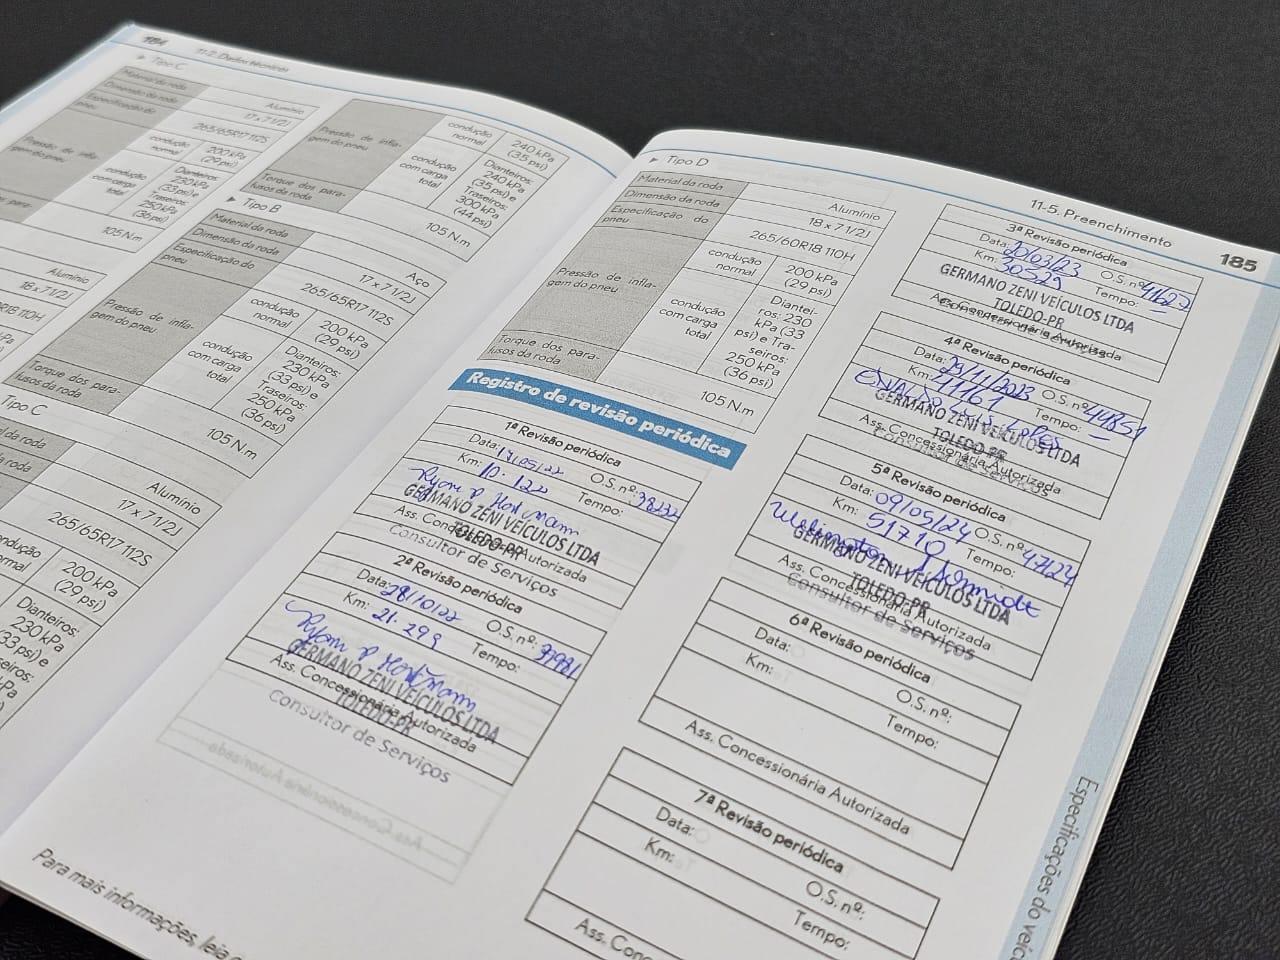 184
11-2. Dados técnicos
Tipo C
Material da roda
Alumínio
Dimensão da roda
17 x 7 1/2J
Especificação do pneu
265/65R17 112S
Pressão de inflagem do pneu
condução normal
200 kPa (29 psi)
condução com carga total
Dianteiros: 230 kPa (33 psi) e Traseiros: 250 kPa (36 psi)
105 N.m
Alumínio
18 x 7 1/2J
Tipo C
Alumínio
17 x 7 1/2J
265/65R17 112S
200 kPa
(29 psi)
Dianteiros:
230 kPa
Pressão de inflagem do pneu
condução normal
240 kPa (35 psi)
condução com carga total
Dianteiros: 240 kPa (35 psi) e Traseiros: 300 kPa (44 psi)
Torque dos parafusos da roda
105 N.m
Tipo B
Material da roda
Aço
Dimensão da roda
17 x 7 1/2J
Especificação do pneu
265/65R17 112S
Pressão de inflagem do pneu
condução normal
200 kPa (29 psi)
condução com carga total
Dianteiros: 230 kPa (33 psi) e Traseiros: 250 kPa (36 psi)
Torque dos parafusos da roda
105 N.m
Para mais informações, leia
11-5. Preenchimento
185
Tipo D
Material da roda
Alumínio
Dimensão da roda
18 x 7 1/2J
Especificação do pneu
265/60R18 110H
Pressão de inflagem do pneu
condução normal
200 kPa (29 psi)
condução com carga total
Dianteiros: 230 kPa (33 psi) e Traseiros: 250 kPa (36 psi)
Torque dos parafusos da roda
105 N.m
Registro de revisão periódica
1ª Revisão periódica
Data: /05/22
O.S. nº: 38232
Km: 10.122
Tempo:
GERMANO ZENI VEÍCULOS LTDA
TOLEDO-PR
Ass. Concessionária Autorizada
Consultor de Serviços
2ª Revisão periódica
Data: 28/10/22
O.S. nº: 39981
Km: 21.299
Tempo:
GERMANO ZENI VEÍCULOS LTDA
TOLEDO-PR
Ass. Concessionária Autorizada
Consultor de Serviços
3ª Revisão periódica
Data: 20/03/23
O.S. nº 41627
Km: 30529
Tempo:
GERMANO ZENI VEÍCULOS LTDA
TOLEDO-PR
Ass. Concessionária Autorizada
4ª Revisão periódica
Data: /11/2023
O.S. nº 44851
Km: 41161
Tempo:
GERMANO ZENI VEÍCULOS LTDA
TOLEDO-PR
Ass. Concessionária Autorizada
Consultor de Serviços
5ª Revisão periódica
Data: 09/05/24
O.S. nº 47124
Km: 51710
Tempo:
GERMANO ZENI VEÍCULOS LTDA
TOLEDO-PR
Ass. Concessionária Autorizada
Consultor de Serviços
6ª Revisão periódica
Data:
O.S. nº:
Km:
Tempo:
Ass. Concessionária Autorizada
7ª Revisão periódica
Data:
O.S. nº:
Km:
Tempo:
Ass.
Especificações do